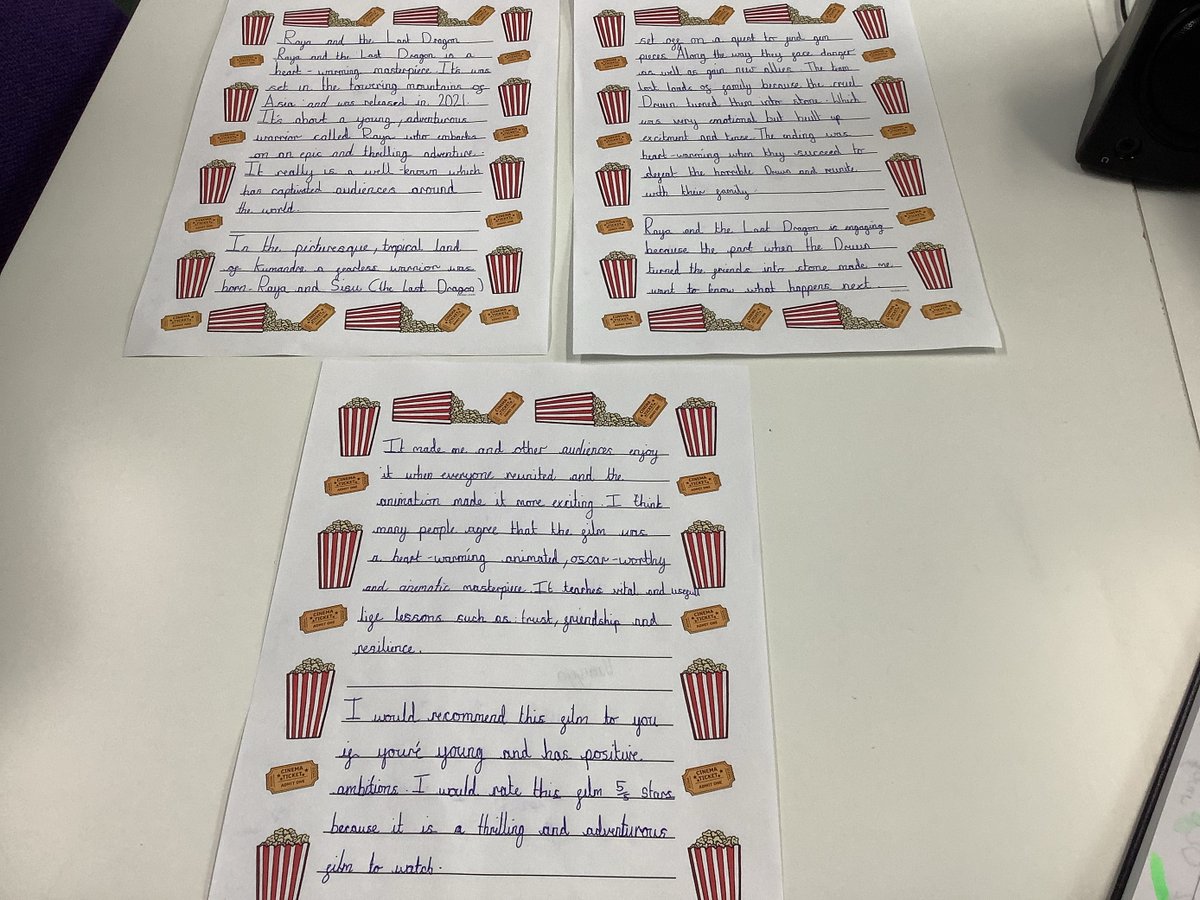 Raya and the Last Dragon
Raya and the Last Dragon is a
heart-warming masterpiece. It's was
set in the towering mountains of
Asia and was released in 2021.
It's about a young, adventurous
warrior called Raya who embarks
on an epic and thrilling adventure.
It really is a well-known which
has captivated audiences around
the world.
In the picturesque, tropical land
of Kumandra a fearless warrior was
born. Raya and Sisu (the Last Dragon)
set off on a quest to find gem
pieces. Along the way they face danger
as well as gain new allies. The team
lost loads of family because the cruel
Druun turned them into stone. Which
was very emotional but built up
excitment and tense. The ending was
heart-warming when they succeed to
defeat the horrible Druun and reunite
with their family.
Raya and the Last Dragon is engaging
because the part when the Druun
turned the friends into stone made me
want to know what happens next.
It made me and other audiences enjoy
it when everyone reunited and the
animation made it more exciting. I think
many people agree that the film was
a heart-warming animated, oscar-worthy
and cinematic masterpiece. It teaches vital and usefull
life lessons such as: trust, friendship and
resilience.
I would recommend this film to you
if you're young and has positive
ambitions. I would rate this film 5/5 stars
because it is a thrilling and adventurous
film to watch.
CINEMA
TICKET
ADMIT ONE